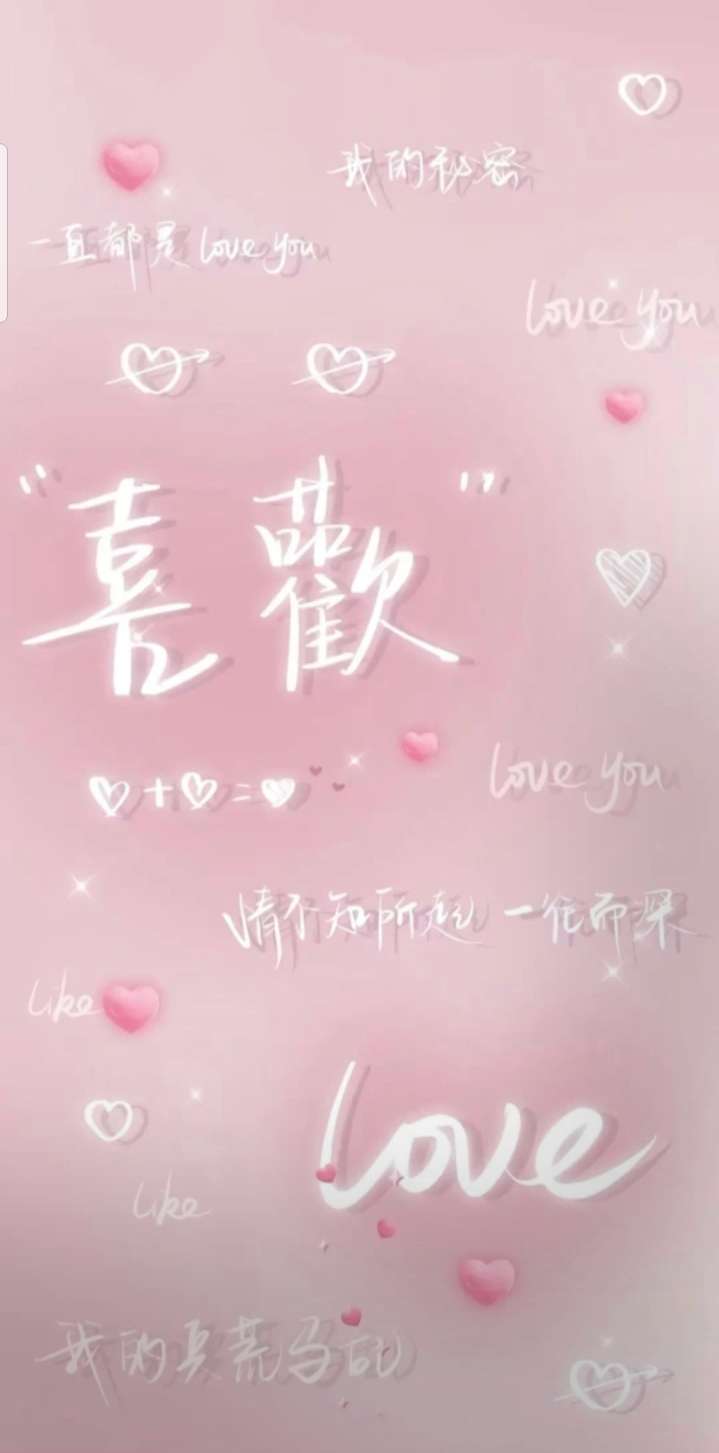 我的秘密
一直都是 love you
love you
"喜歡"
love you
情不知所起 一往而深
like
love
like
我的兵荒马乱